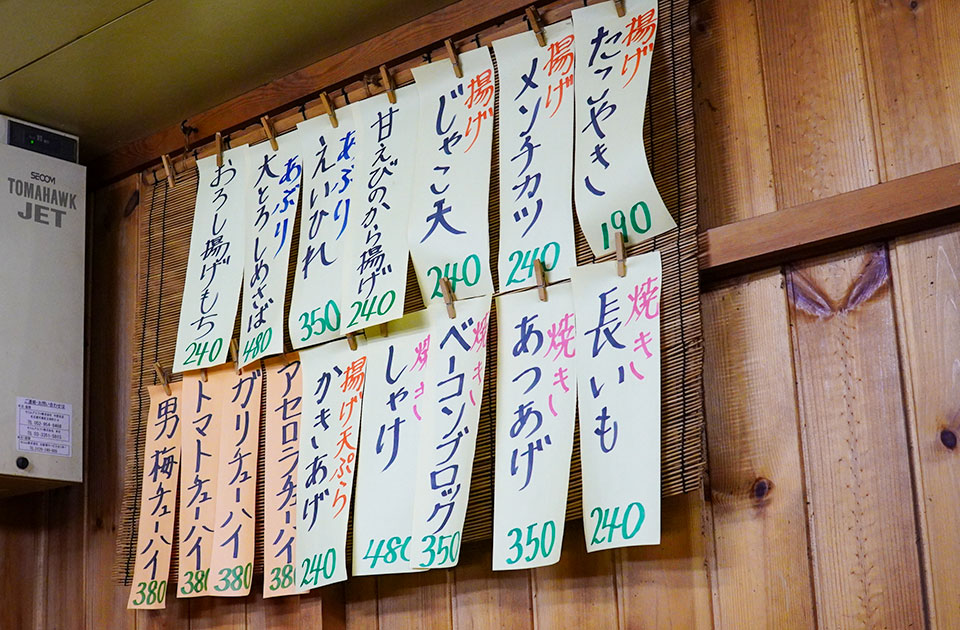 揚げ
たこやき
190
揚げ
メンチカツ
240
揚げ
じゃこ天
240
甘えびのから揚げ
240
あぶり
えいひれ
350
あぶり
大とろしめさば
480
おろし揚げもち
240
焼き
長いも
240
焼き
あつあげ
350
焼き
ベーコンブロック
350
焼き
しゃけ
480
揚げ天ぷら
かきあげ
240
アセロラチューハイ
38
ガリチューハイ
380
トマトチューハイ
380
男梅チューハイ
380
SECOM
TOMAHAWK
JET